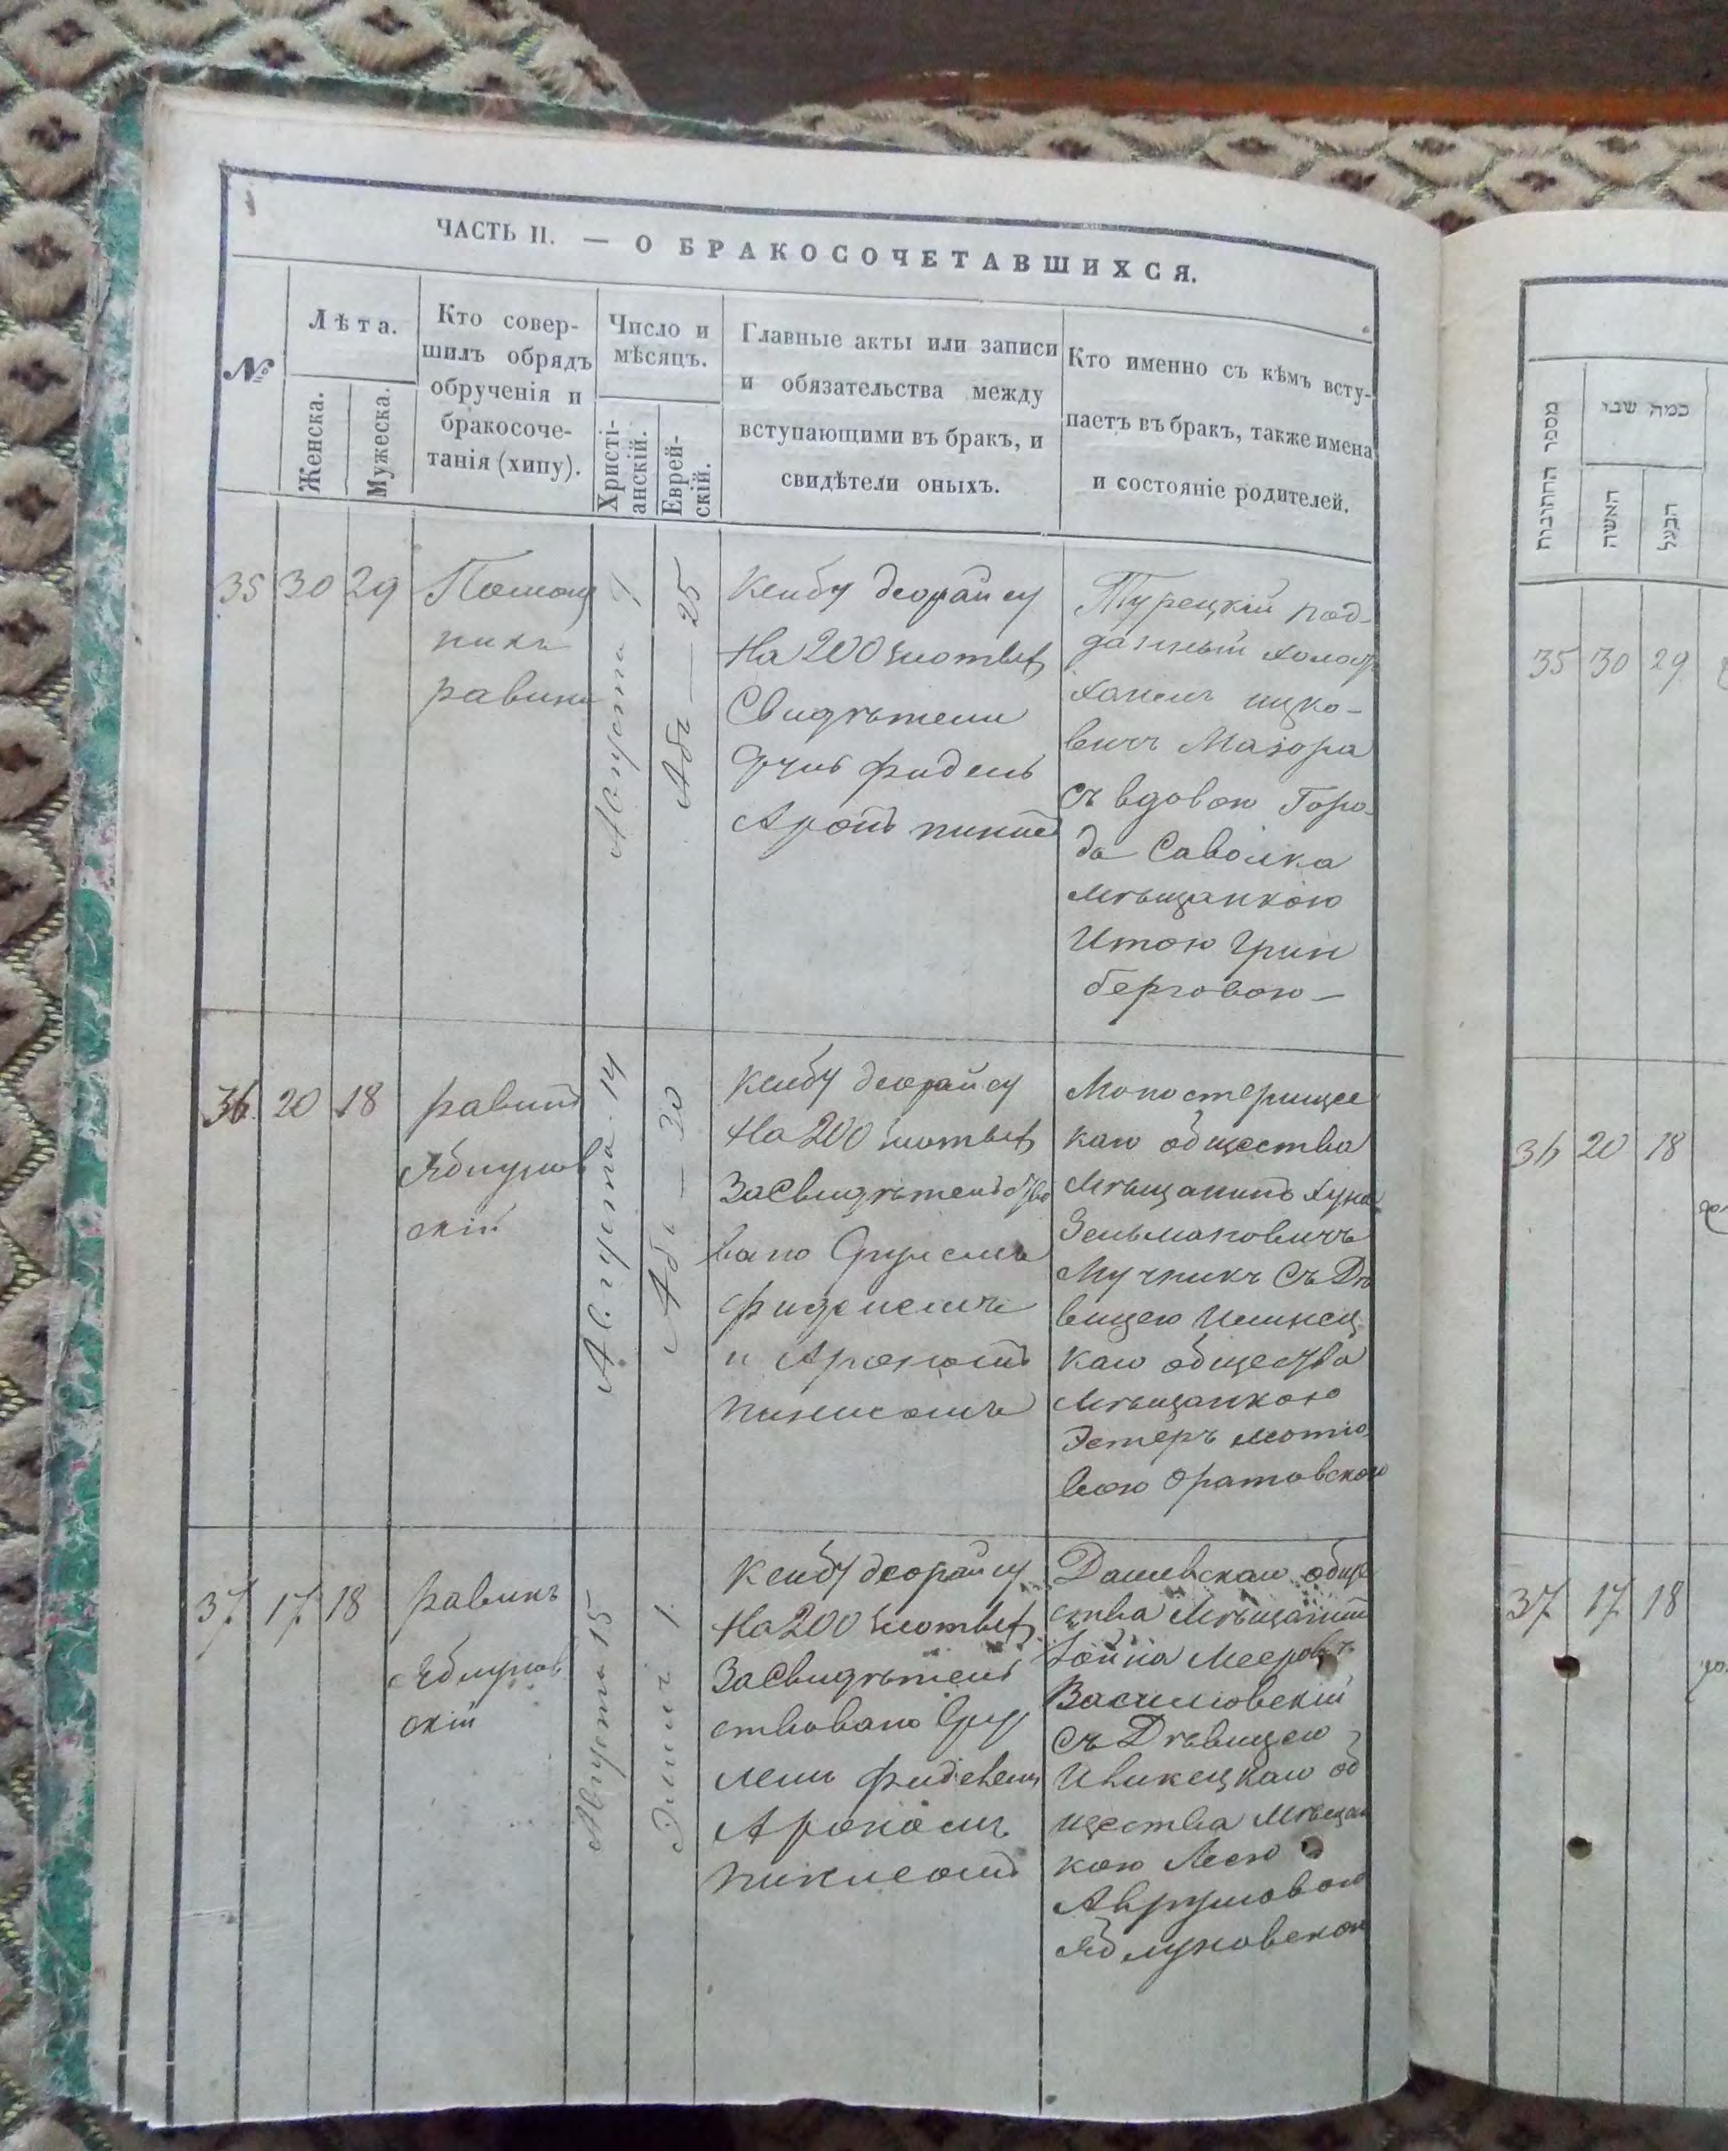 ЧАСТЬ II. — О БРАКОСОЧЕТАВШИХСЯ.
№
Лѣта.
Женска.
Мужеска.
Кто совер-
шилъ обрядъ
обрученія и
бракосоче-
танія (хипу).
Число и
мѣсяцъ.
Христі-
анскій.
Еврей-
скій.
Главные акты или записи
и обязательства между
вступающими въ бракъ, и
свидѣтели оныхъ.
Кто именно съ кѣмъ всту-
паетъ въ бракъ, также имена
и состояніе родителей.
35 30 29
Помощ
никъ
равина
Августа
Абъ — 25
На 200 злотыхъ
Свидѣтели
Аронъ
Турецкій под-
данный холост
ицко-
вичъ Мазора
съ вдовою Горо-
да Саволка
мѣщанкою
Итою Грин
берговою —
36. 20 18
равинъ
Яблунов
скій
Августа 14
Абъ — 30
На 200 злотыхъ
Засвидѣтельство
вано Срулемъ
и Арономъ
Монастерищс
каго общества
мѣщанинъ Хуна
Зельмановичъ
Мучникъ съ Дѣ
вицею Илинец
каго общества
мѣщанкою
Эстеръ Мотю
вою Оратовскою
37 17 18
равинъ
Яблунов
скій
Августа 15
Элилъ 1.
На 200 злотыхъ
Засвидѣтель
ствовано Сру
лемъ
Арономъ
Дашевскаго обще
ства Мѣщанинъ
Іойна Мееровъ
Василовскій
съ Дѣвицею
об
щества мѣщан
кою Лею
Аврумовою
Яблуновскою
מספר החתובות
כמה שני
האשה
הבעל
35 30 29
36 20 18
37 17 18